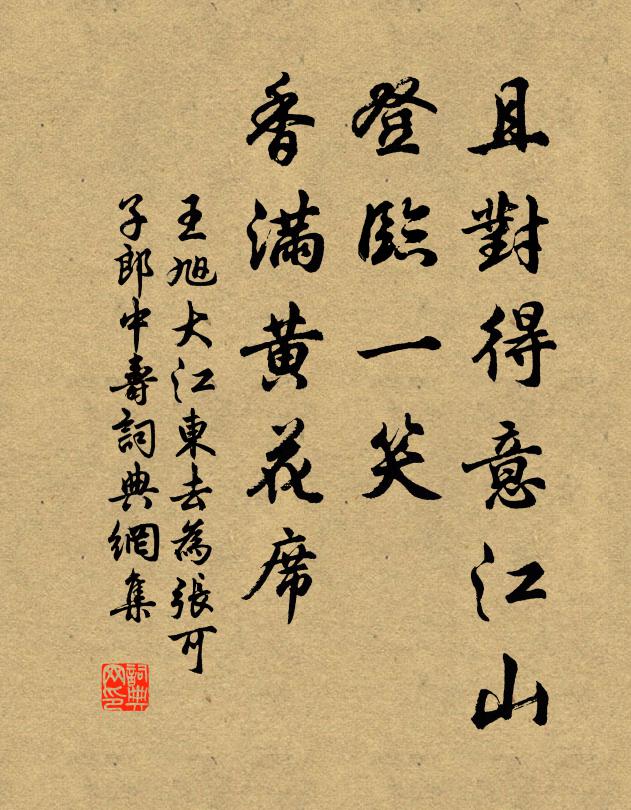 且對得意江山
登臨一笑
香滿黄花席
王旭大江東去為張可
子郎中壽詞典網集
詞典
网印